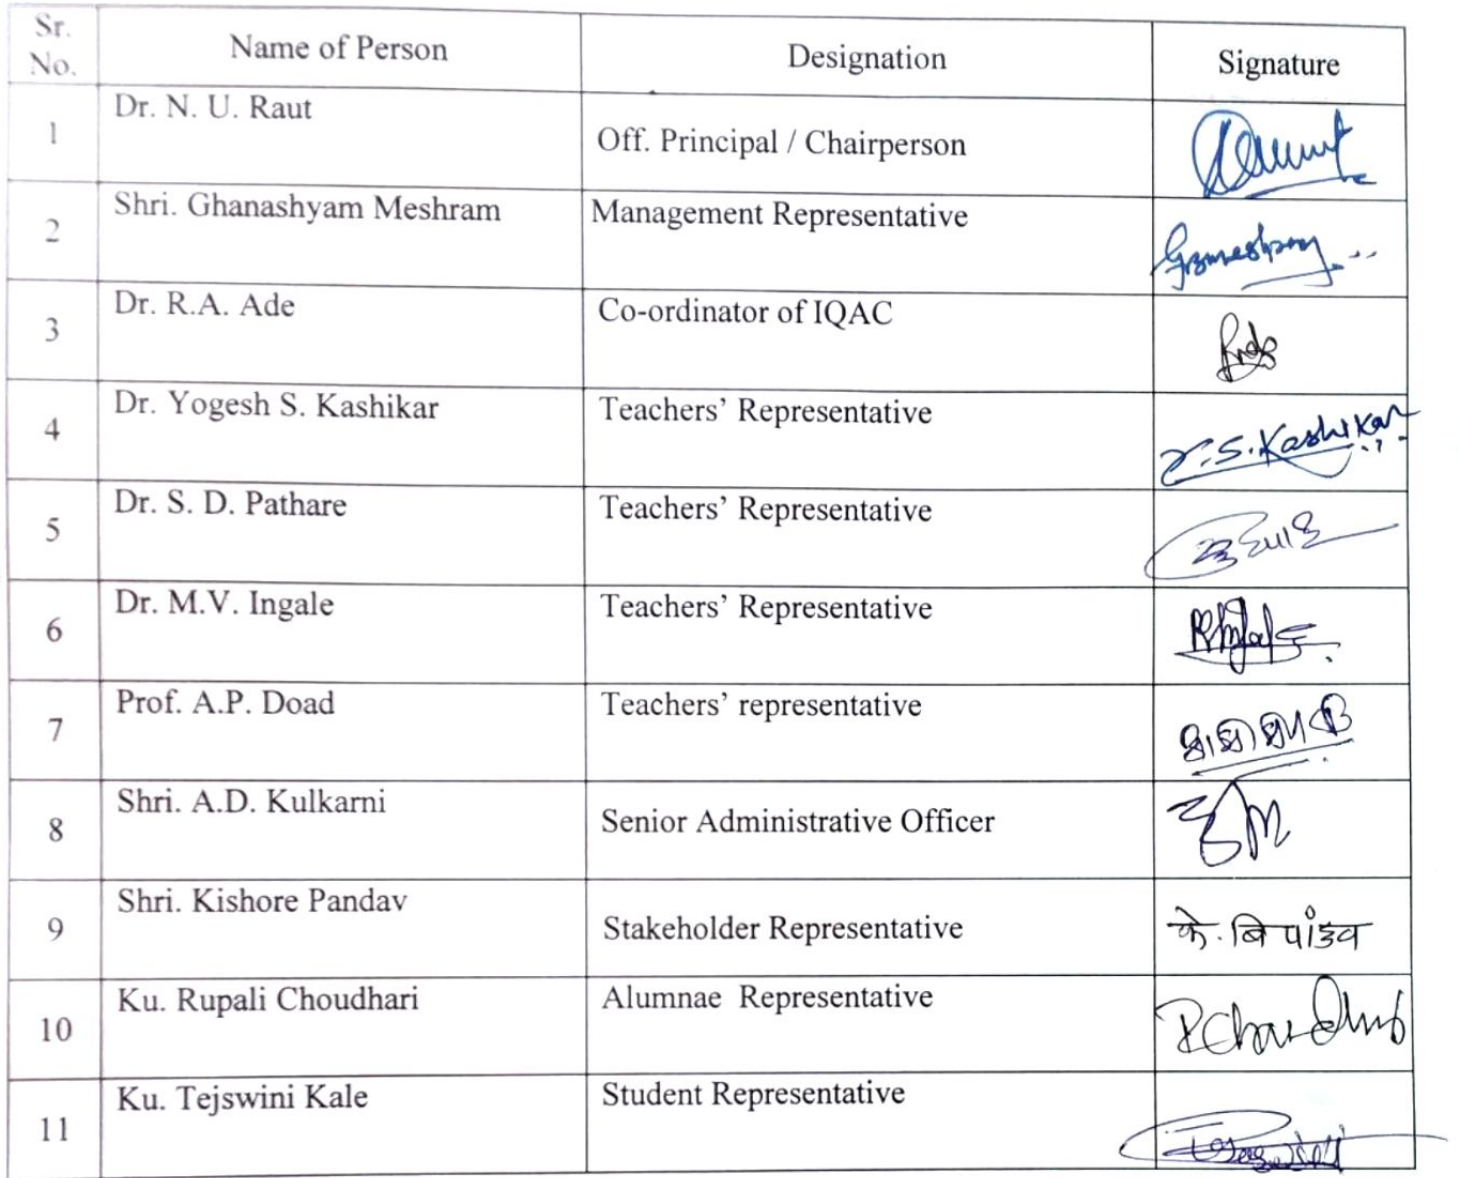 Sr. No. Name of Person Designation Signature
1 Dr. N. U. Raut Off. Principal / Chairperson
2 Shri. Ghanashyam Meshram Management Representative
3 Dr. R.A. Ade Co-ordinator of IQAC
4 Dr. Yogesh S. Kashikar Teachers’ Representative Y.S.Kashikar
5 Dr. S. D. Pathare Teachers’ Representative
6 Dr. M.V. Ingale Teachers’ Representative
7 Prof. A.P. Doad Teachers’ representative
8 Shri. A.D. Kulkarni Senior Administrative Officer
9 Shri. Kishore Pandav Stakeholder Representative के. बि पांडव
10 Ku. Rupali Choudhari Alumnae Representative
11 Ku. Tejswini Kale Student Representative